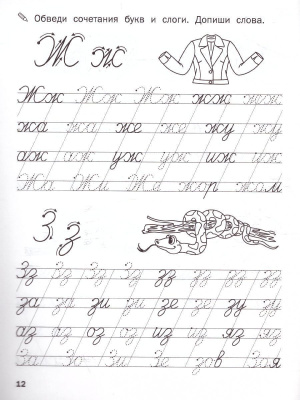 Обведи сочетания букв и слоги. Допиши слова.
Ж ж
Жж Жж Жж жж жж
жа жа же же жу жу
аж аж уж уж иж иж
Жа Жи Же жор жом
З з
Зз Зз Зз зз зз зз
за за зи зи зе зе зу зу
аз аз оз оз из из яз яз
За Зо Зи Зе зов Зоя
12